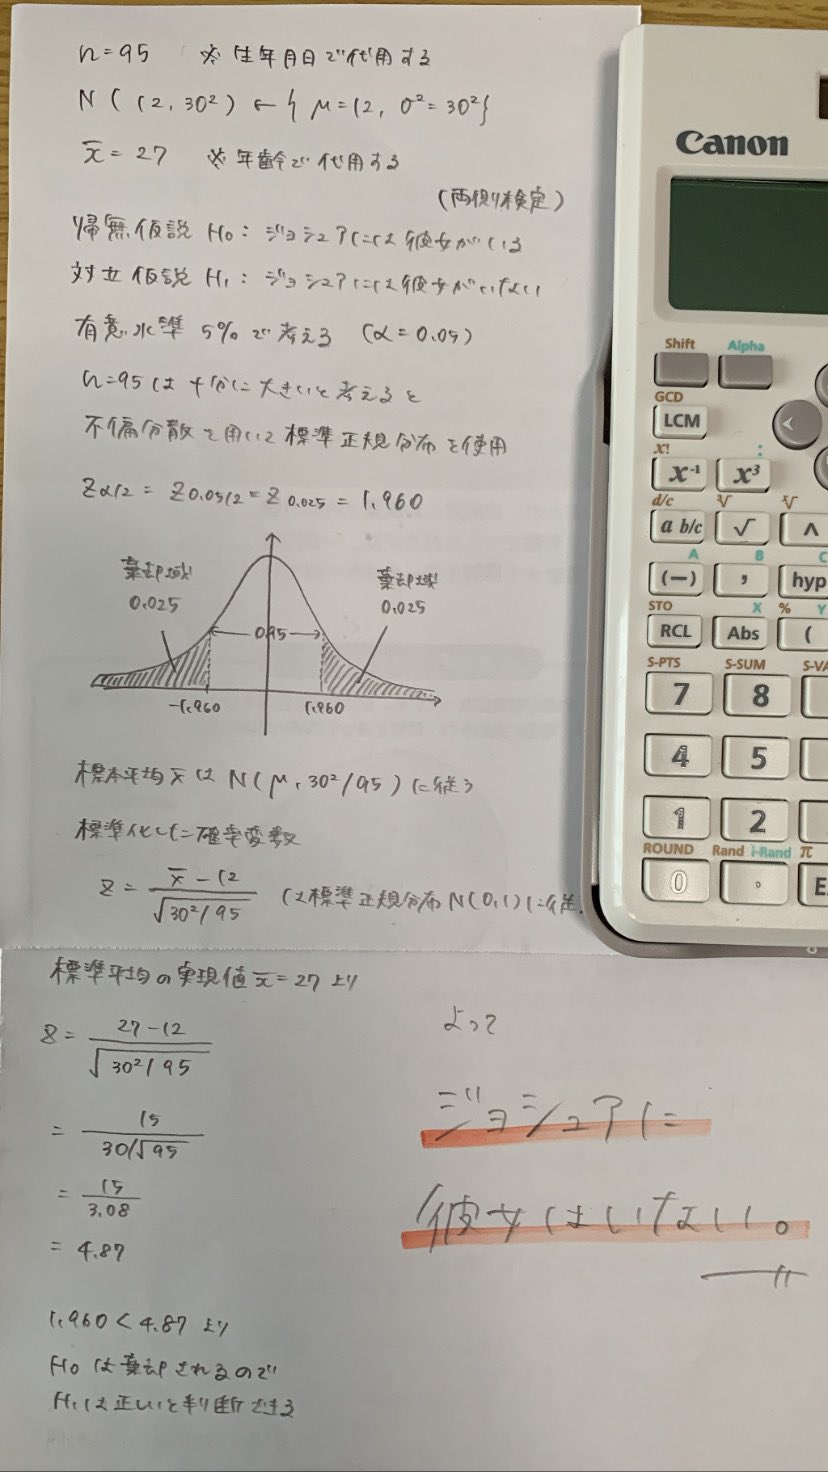 n=95 ※生年月日で代用する
N(12, 30²) ← { μ=12, σ²=30² }
x̄ = 27 ※年齢で代用する
(両側検定)
帰無仮説 H₀: ジョシュアには彼女がいる
対立仮説 H₁: ジョシュアには彼女がいない
有意水準 5%で考える (α=0.05)
n=95は十分に大きいと考えると
不偏分散を用いて標準正規分布を使用
Zα/2 = Z0.05/2 = Z0.025 = 1.960
棄却域
0.025
棄却域
0.025
0.95
-1.960
1.960
標本平均 x̄ は N(μ, 30²/95) に従う
標準化した確率変数
z = (x̄ - 12) / √(30²/95) は標準正規分布 N(0,1)に従
標準平均の実現値 x̄=27 より
z = (27-12) / √(30²/95)
= 15 / (30/√95)
= 15 / 3.08
= 4.87
1.960 < 4.87 より
H₀は棄却されるので
H₁は正しいと判断できる
よって
ジョシュアに
彼女はいない。
Canon
Shift Alpha
GCD
LCM
X! :
x⁻¹ x³
d/c √ √
a b/c √ ∧
A B C
(—) , hyp
STO X % Y
RCL Abs (
S-PTS S-SUM S-VA
7 8
4 5
1 2
ROUND Rand i-Rand π
0 . E